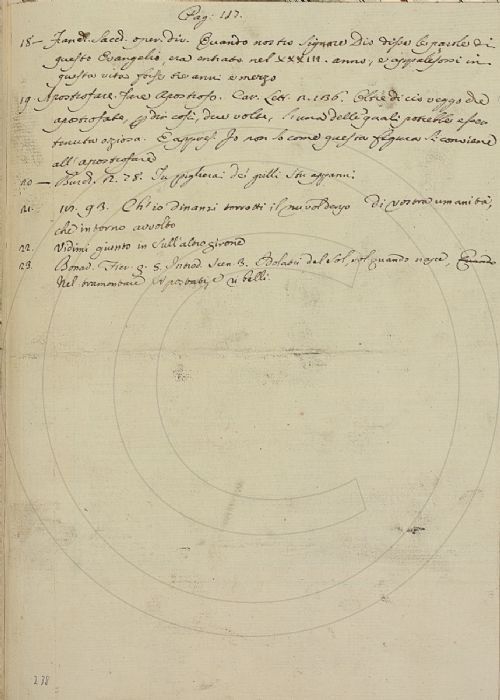 Pag: 117.
18 — Sacc. oper. div. Quando nostro Signore Dio disse le parole di
questo Evangelio, era entrato nel XXXIII. anno, e appalesossi in
questa vita forse tre anni e mezzo
19 Apostrofare. fare Apostrofo. Car. Lett. 2. 136. Oltre di ciò veggo che
apostrofate, p dir così, due volte, l'una delle quali potrebbe esser
tenuta oziosa. E appres. Io non so come questa figura si conviene
all'apostrofare
20 — 2. 78. Tu piglierai dei grilli s'tu appanni
21. 93. Ch'io dinanzi torrotti il nuvolaggio di vostra umanità,
che intorno avvolto
22. Vidimi giunto in sull'altro girone
23. Buonar. Fier. 3. 5. Introd. Scen. 3. Adoratori del sol, sol quando nasce,
Nel tramontare
238